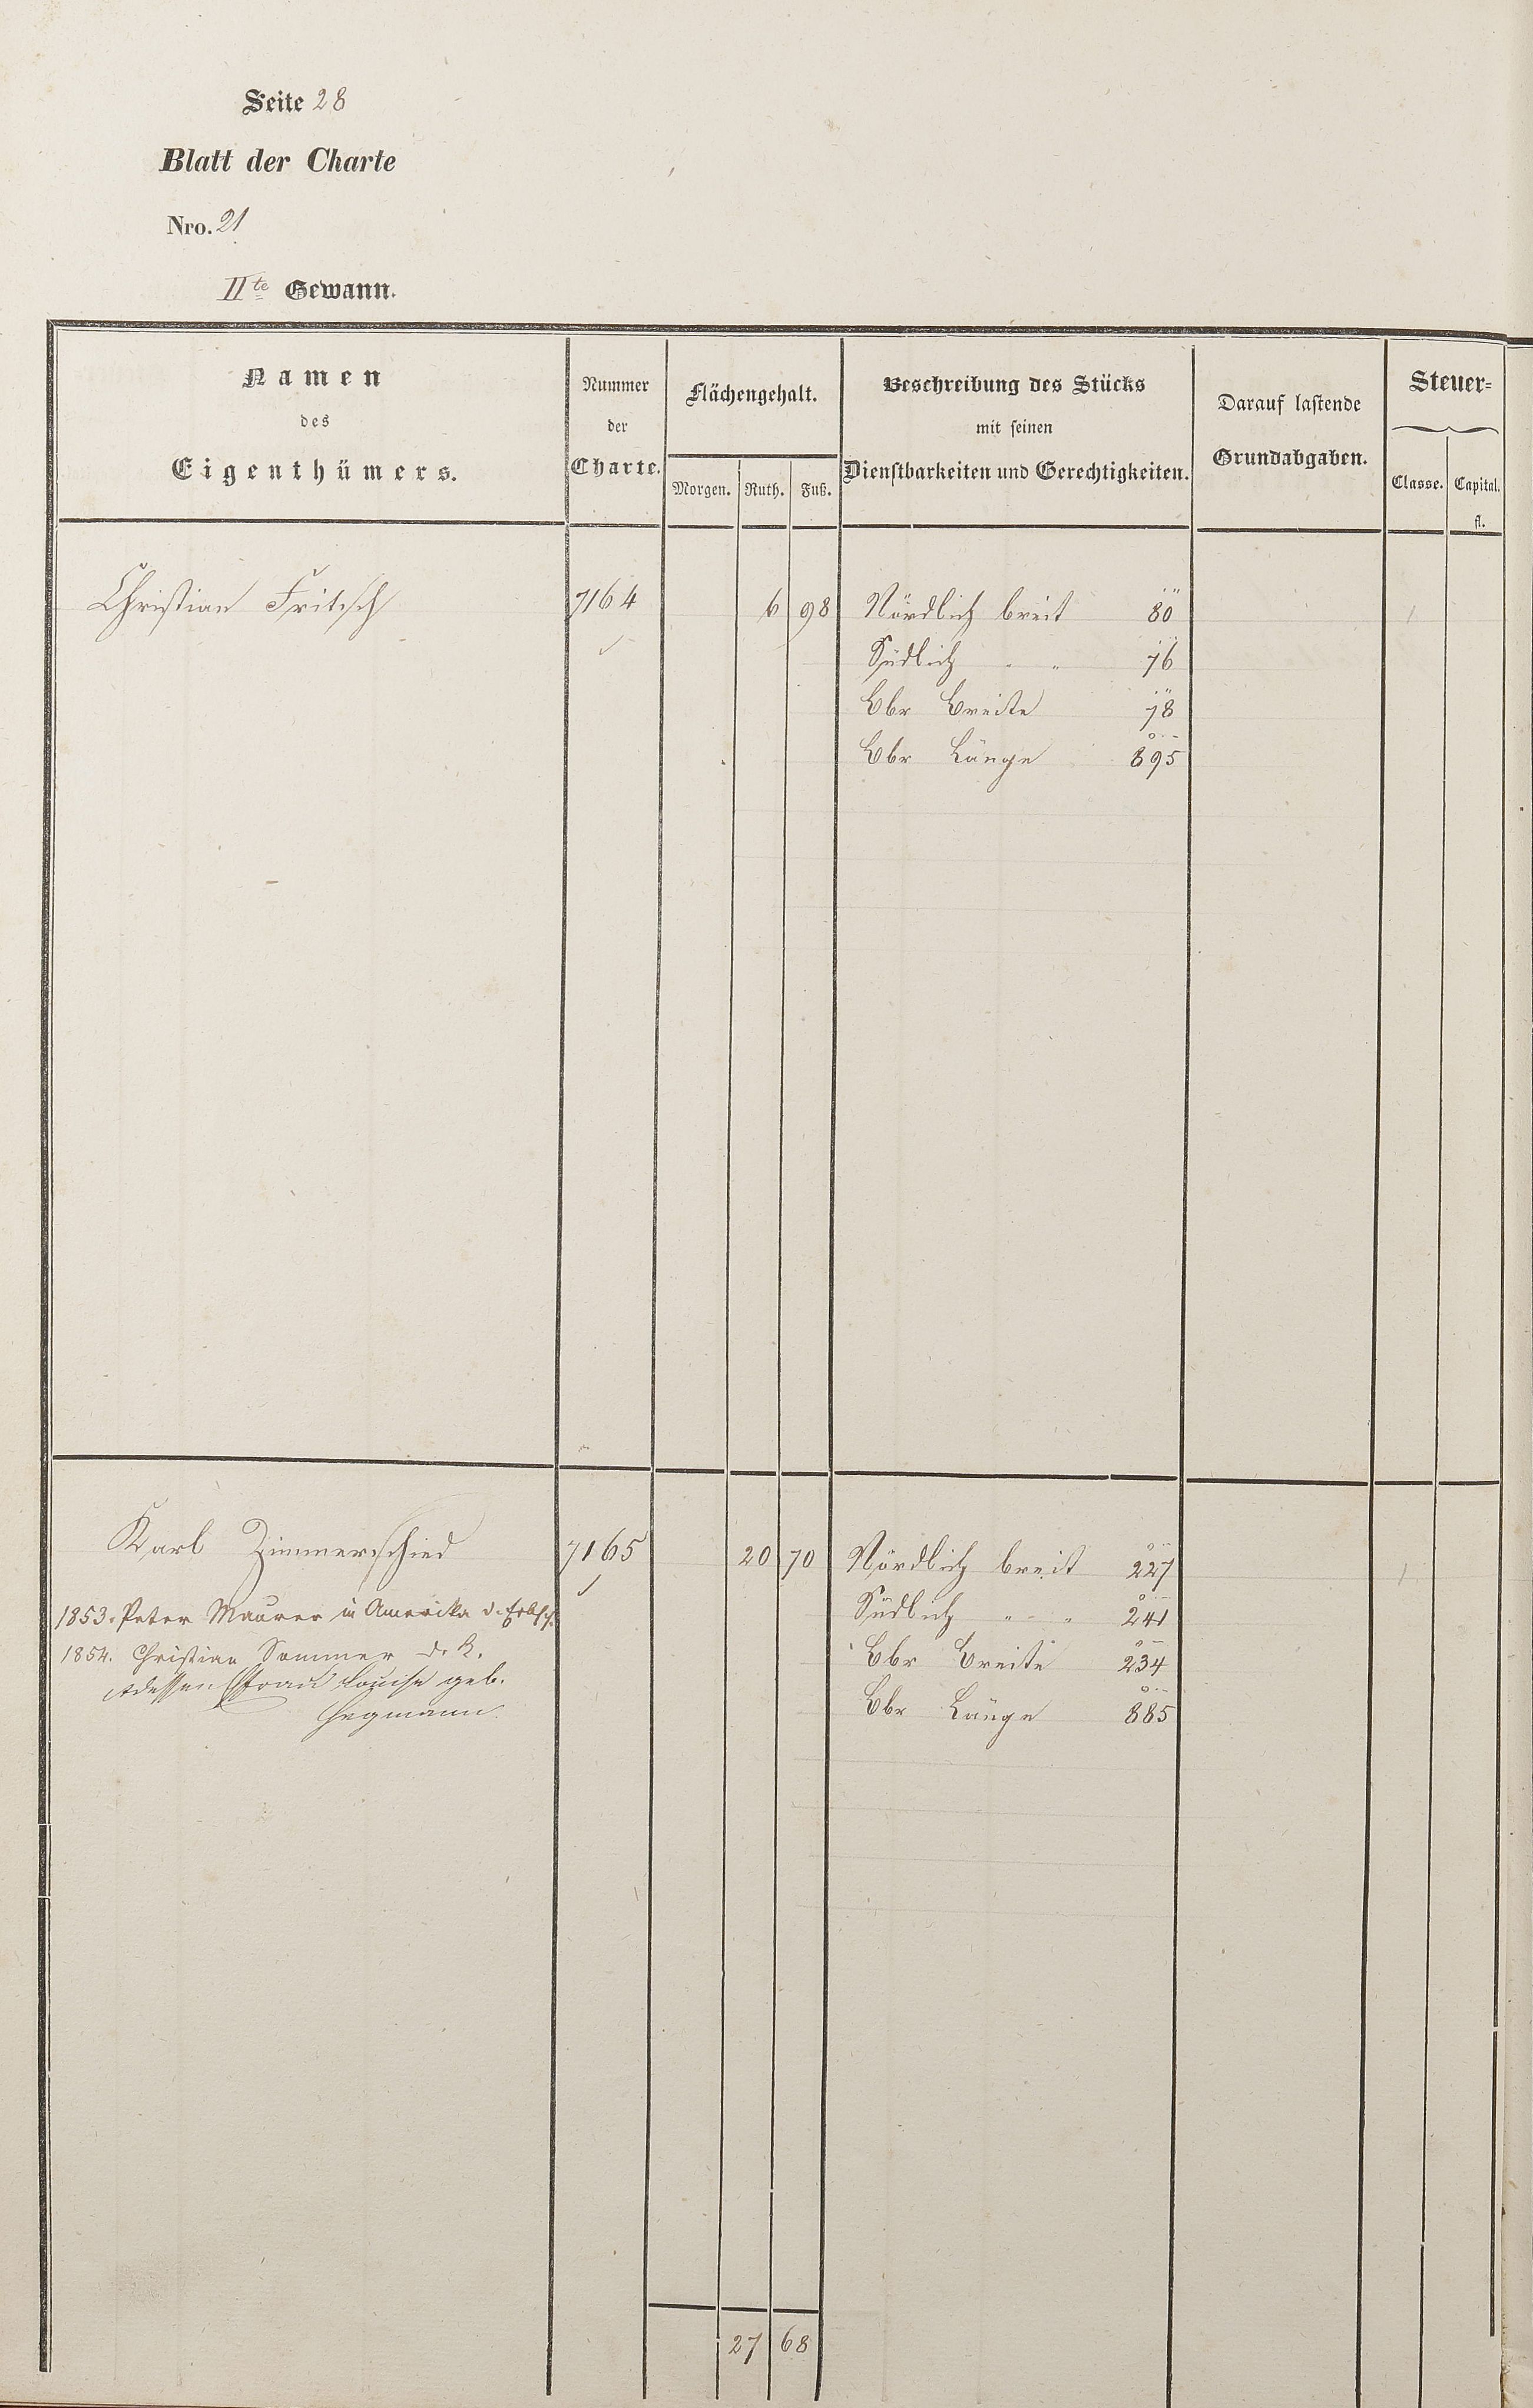 Seite 28
Blatt der Charte
Nro. 21
IIte Gewann.
Namen
des
Eigenthümers.
Nummer
der
Charte.
Flächengehalt.
Morgen. Ruth. Fuß.
Beschreibung des Stücks
mit seinen
Dienstbarkeiten und Gerechtigkeiten.
Darauf lastende
Grundabgaben.
Steuer=
Classe. Capital.
fl.
Christian Fritsch 7164 6 98 Nördlich breit 80
Südlich " " 76
Ebr Breite 78
Ebr Länge 895
Karl Zimmerschied 7165 20 70 Nördlich breit 227
1853. Peter Maurer in Amerika d. Erbsch. Südlich " " 241
1854. Christian Sommer d. K. Ebr Breite 234
dessen Frau Louise geb. Ebr Länge 885
Hegmann.
27 68